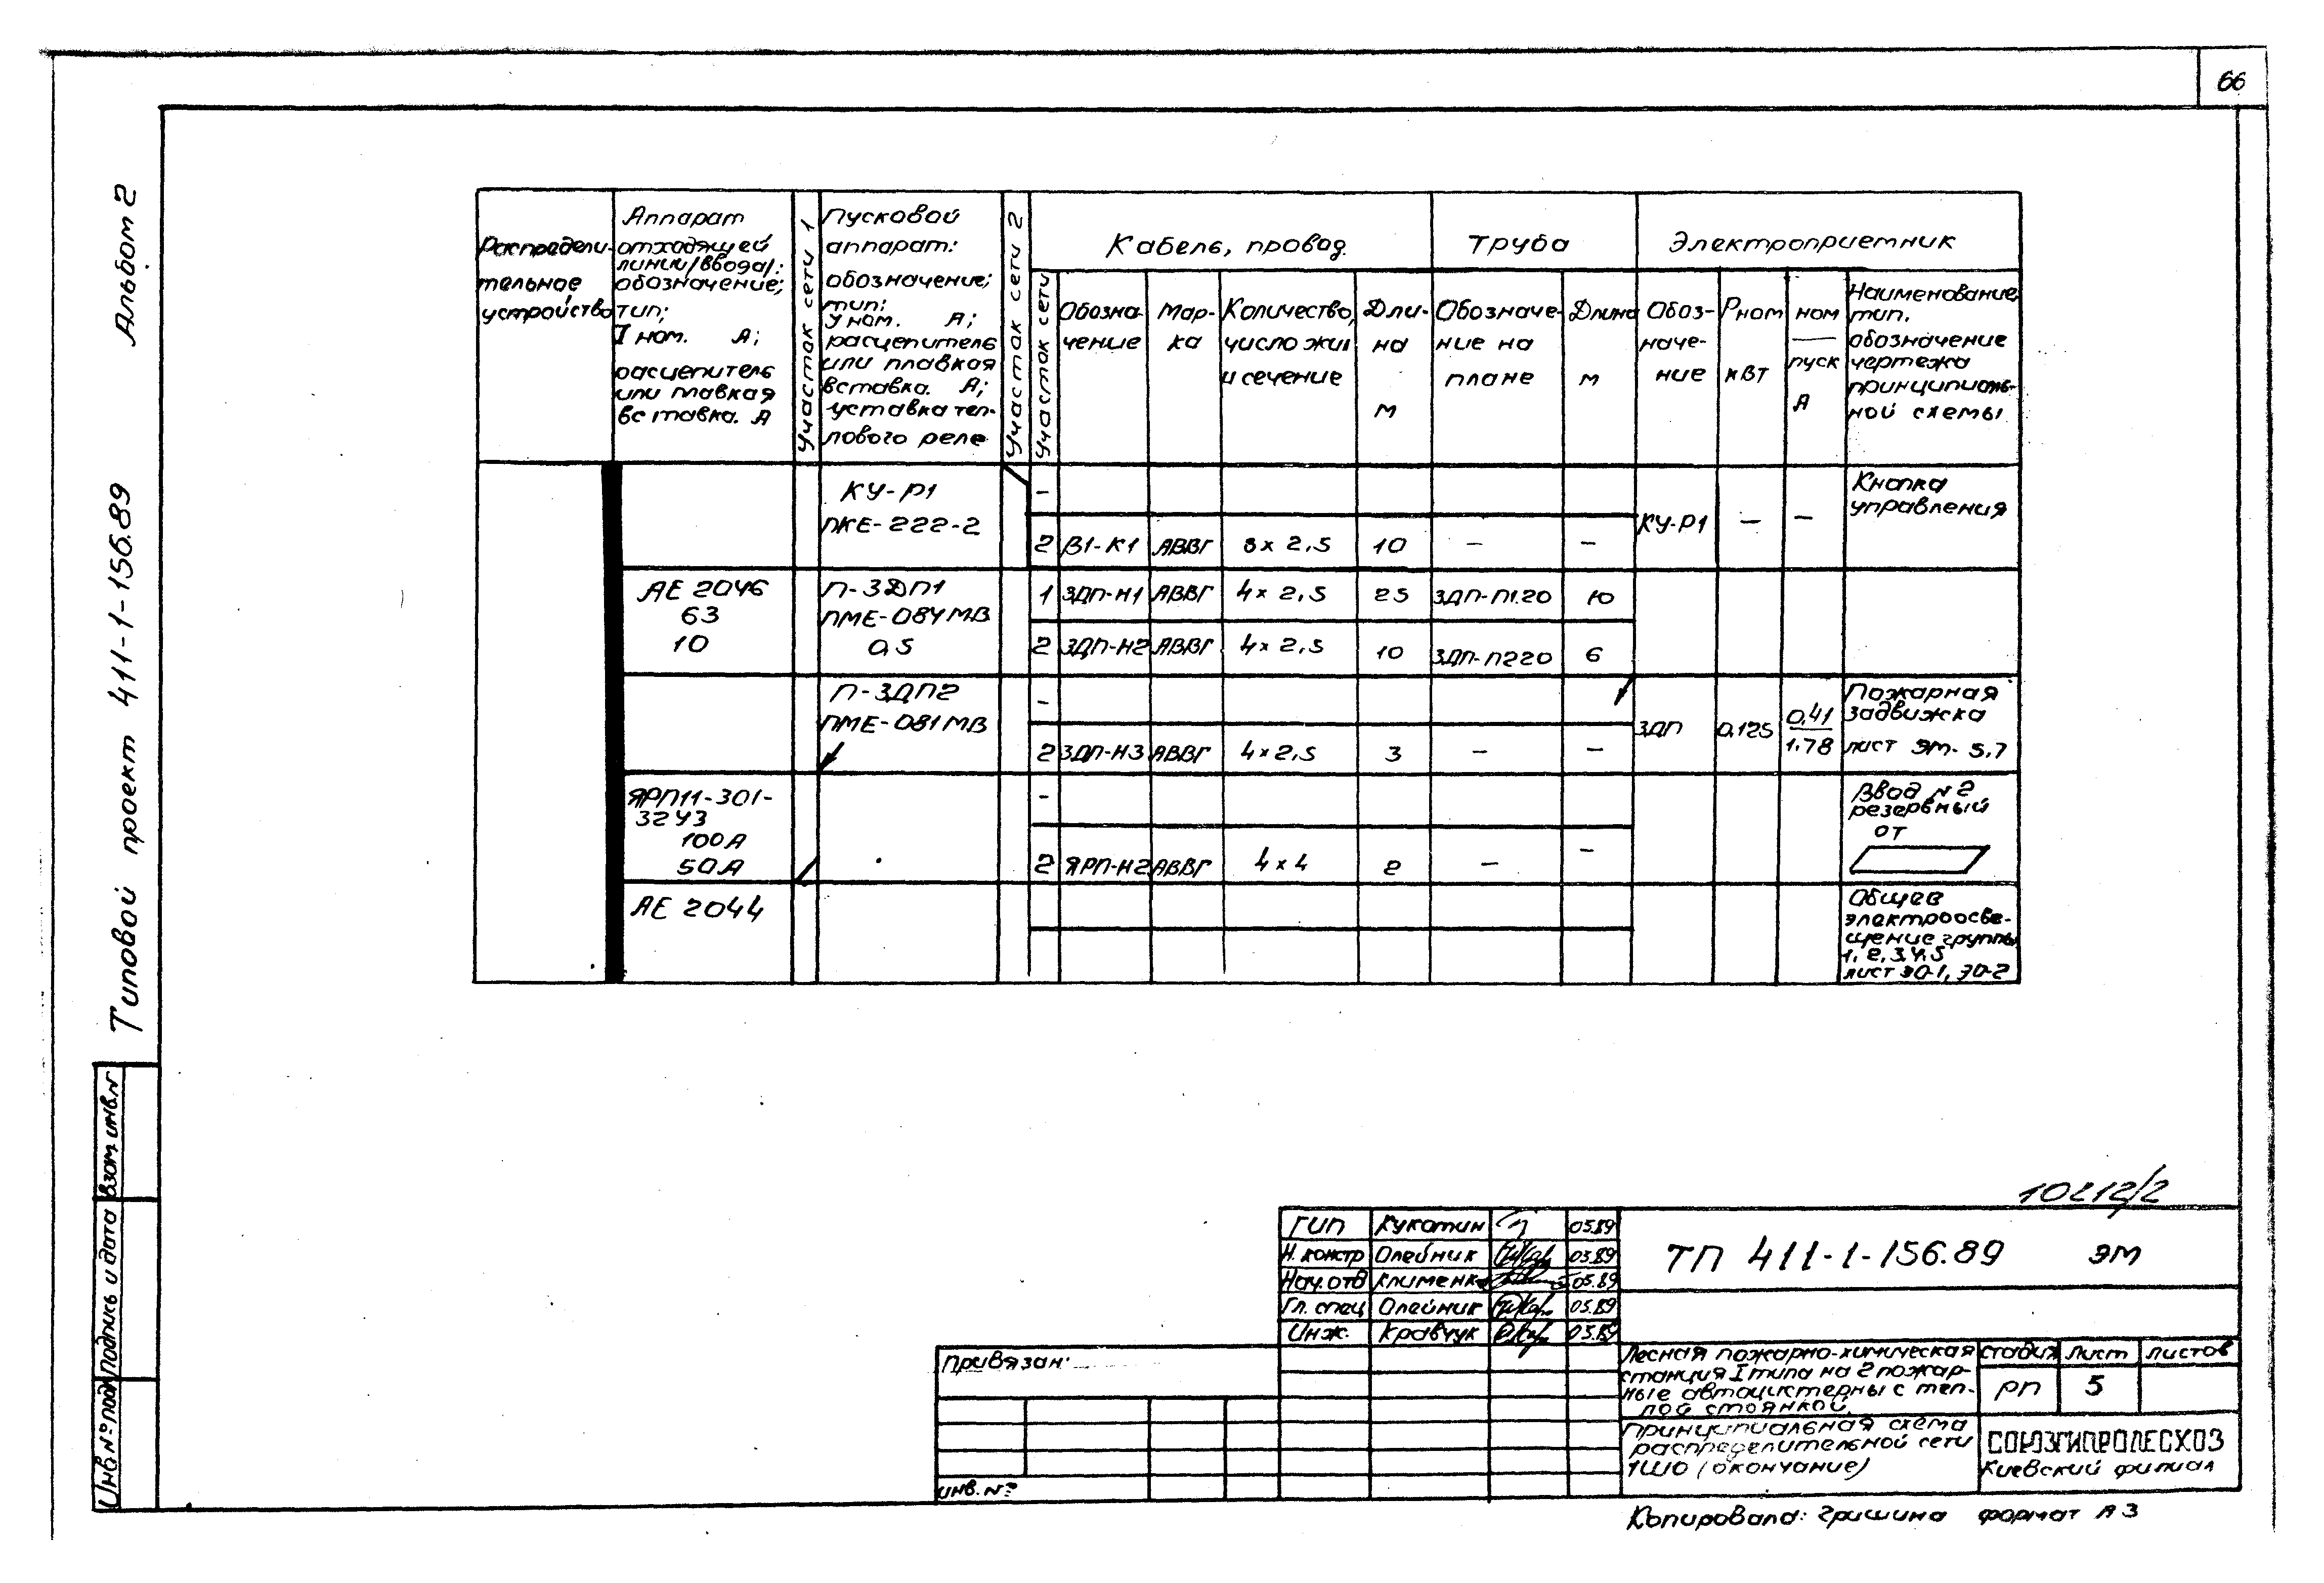 66
Альбом 2
Типовой проект 411-1-156.89
Распредели-
тельное
устройство
Аппарат
отходящей
линии/ввода/:
обозначение;
тип;
I ном. А;
расцепитель
или плавкая
вставка. А
Участок сети 1
Пусковой
аппарат:
обозначение;
тип;
У ном. А;
расцепитель
или плавкая
вставка. А;
уставка теп-
лового реле
Участок сети 2
Участок сети
Кабель, провод.
Обозна-
чение
Мар-
ка
Количество,
число жил
и сечение
Дли-
на
м
Труба
Обозначе-
ние на
плане
Длина
м
Электроприемник
Обоз-
наче-
ние
Рном
кВт
ном
пуск
А
Наименование
тип.
обозначение
чертежа
принципиаль-
ной схемы
КУ-Р1
ПКЕ-222-2
-
2 В1-К1 АВВГ 8х2,5 10 - -
КУ-Р1 - -
Кнопка
управления
АЕ 2046
63
10
П-ЗДП1
ПМЕ-084МВ
0,5
1 ЗДП-Н1 АВВГ 4х2,5 25 ЗДП-П1.20 10
2 ЗДП-Н2 АВВГ 4х2,5 10 ЗДП-П220 6
П-ЗДП2
ПМЕ-081МВ
-
2 ЗДП-Н3 АВВГ 4х2,5 3 - -
ЗДП 0,125 0,41
1,78
Пожарная
задвижка
лист ЭМ-5.7
ЯРП11-301-
32У3
100А
50А
-
2 ЯРП-Н2 АВВГ 4х4 2 - -
Ввод №2
резервный
от
АЕ 2044
Общее
электроосве-
щение группы
1,2,3,4,5
лист ЭО-1, ЭО-2
Взам. инв.№
Подпись и дата
Инв.№ подл
10212/2
ГИП Кукотин 05.89
Н. констр Олейник 05.89
Нач. отд Клименко 05.89
Гл. спец Олейник 05.89
Инж. Кравчук 05.89
ТП 411-1-156.89 ЭМ
Привязан:
инв.№
Лесная пожарно-химическая
станция I типа на 2 пожар-
ные автоцистерны с теп-
лой стоянкой.
стадия лист листов
РП 5
Принципиальная схема
распределительной сети
1ШО (окончание)
СОЮЗГИПРОЛЕСХОЗ
Киевский филиал
Копировала: Гришина формат А3